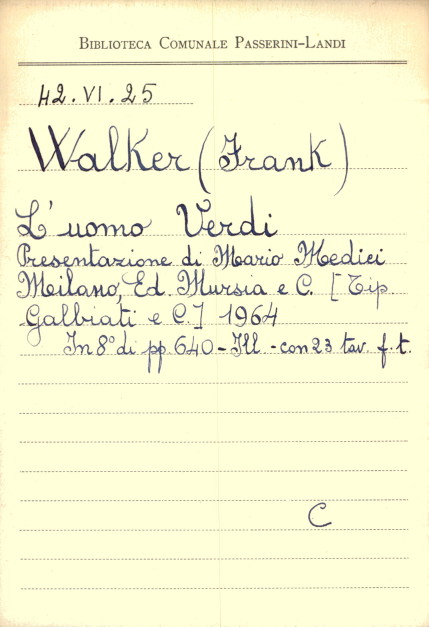 BIBLIOTECA COMUNALE PASSERINI-LANDI
42.VI.25
Walker (Frank)
L'uomo Verdi
Presentazione di Mario Medici
Milano, Ed. Mursia e C. [Tip.
Galbiati e C.] 1964
In 8° di pp. 640 - Ill. - con 23 tav. f. t.
C